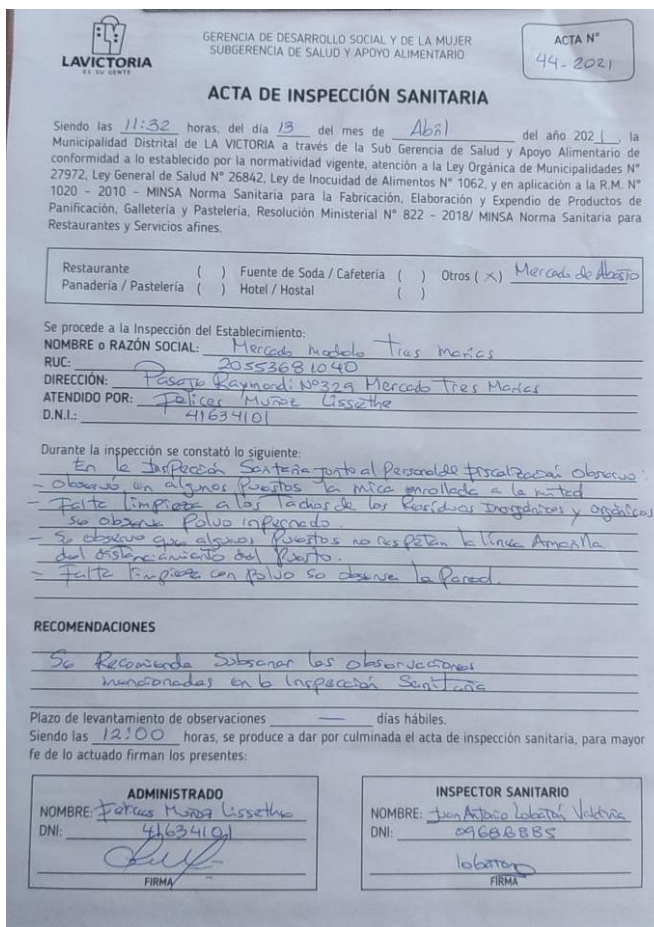 LAVICTORIA
ES SU GENTE
GERENCIA DE DESARROLLO SOCIAL Y DE LA MUJER
SUBGERENCIA DE SALUD Y APOYO ALIMENTARIO
ACTA N°
44-2021
ACTA DE INSPECCIÓN SANITARIA
Siendo las 11:32 horas, del día 13 del mes de Abril del año 2021, la
Municipalidad Distrital de LA VICTORIA a través de la Sub Gerencia de Salud y Apoyo Alimentario de
conformidad a lo establecido por la normatividad vigente, atención a la Ley Orgánica de Municipalidades N°
27972, Ley General de Salud N° 26842, Ley de Inocuidad de Alimentos N° 1062, y en aplicación a la R.M. N°
1020 - 2010 - MINSA Norma Sanitaria para la Fabricación, Elaboración y Expendio de Productos de
Panificación, Galletería y Pastelería, Resolución Ministerial N° 822 - 2018/ MINSA Norma Sanitaria para
Restaurantes y Servicios afines.
Restaurante ( ) Fuente de Soda / Cafetería ( ) Otros (X) Mercado de Abasto
Panadería / Pastelería ( ) Hotel / Hostal ( )
Se procede a la Inspección del Establecimiento:
NOMBRE o RAZÓN SOCIAL: Mercado modelo Tres Marías
RUC: 20553681040
DIRECCIÓN: Pasaje Raymondi N°329 Mercado Tres Marías
ATENDIDO POR: Felices Muñoz Lissethe
D.N.I.: 41634101
Durante la inspección se constató lo siguiente:
En la Inspección Sanitaria junto al Personal de Fiscalización Observo:
- Observó en algunos Puestos la mica enrollada a la mitad
- Falta limpieza a los Tachos de los Residuos Inorgánicos y orgánicos
se observa Polvo
- Se observo que algunos Puestos no respetan la línea Amarilla
del distanciamiento del Puesto.
- Falta limpieza con Polvo se observa la Pared.
RECOMENDACIONES
Se Recomienda Subsanar las observaciones
mencionadas en la Inspección Sanitaria
Plazo de levantamiento de observaciones — días hábiles.
Siendo las 12:00 horas, se produce a dar por culminada el acta de inspección sanitaria, para mayor
fe de lo actuado firman los presentes:
ADMINISTRADO
NOMBRE: Felices Muñoz Lissethe
DNI: 41634101
FIRMA
INSPECTOR SANITARIO
NOMBRE: Juan Antonio Lobatón Valdivia
DNI: 09686885
lobaton
FIRMA